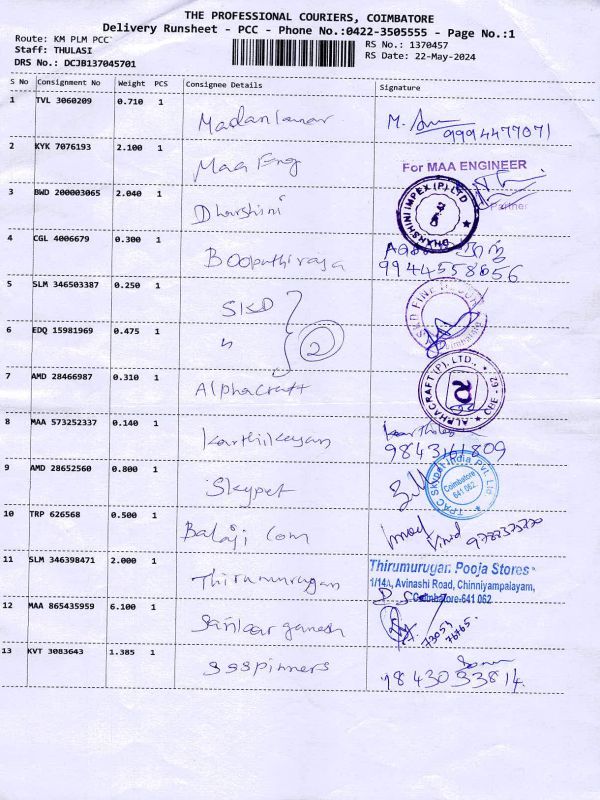 THE PROFESSIONAL COURIERS, COIMBATORE
Delivery Runsheet - PCC - Phone No.:0422-3505555 - Page No.:1
Route: KM PLM PCC
RS No.: 1370457
Staff: THULASI
RS Date: 22-May-2024
DRS No.: DCJB137045701
S No Consignment No Weight PCS Consignee Details Signature
1 TVL 3060209 0.710 1 Madankumar M. 9994477071
2 KYK 7076193 2.100 1 Maa Eng For MAA ENGINEER
Partner
3 BWD 200003065 2.040 1 Dharshini DHARSHINI IMPEX (P) LTD
4 CGL 4006679 0.300 1 Boopathiraja
5 SLM 346503387 0.250 1 SKD
6 EDQ 15981969 0.475 1 " 2
7 AMD 28466987 0.310 1 Alphacraft ALPHACRAFT (P) LTD.
8 MAA 573252337 0.140 1 Karthikeyan 9843161809
9 AMD 28652560 0.800 1 Skypet TPAC Skypet India Pvt. Ltd
Coimbatore
641 062
10 TRP 626568 0.500 1 Balaji Com
11 SLM 346398471 2.000 1 Thirumurugan Thirumurugan Pooja Stores
1/14A, Avinashi Road, Chinniyampalayam,
Coimbatore-641 062
12 MAA 865435959 6.100 1 Sankar ganesh 73053
76765.
13 KVT 3083643 1.385 1 SSSpinners